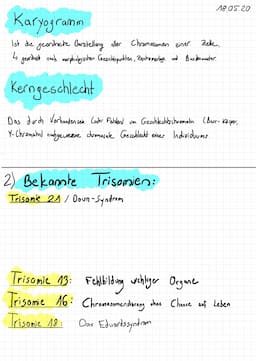 18.05.20
Karyogramm
Ist die geordnete Darstellung der Chromosomen einer Zelle.
↳ geordnet nach morphologischen Gesichtspunkten, Zentromerlage und Bandenmuster
Kerngeschlecht
Das durch Vorhandensein (oder Fehlen) von Geschlechtschromatin (Barr-Körper,
Y-Chromatin) nachgewiesene chromosomale Geschlecht eines Individuums
2) Bekannte Trisomien:
Trisomie 21 / Down-Syndrom
Trisomie 13: Fehlbildung wichtiger Organe
Trisomie 16: Chromosomenstörung ohne Chance auf Leben
Trisomie 18: Das Edwardssyndrom